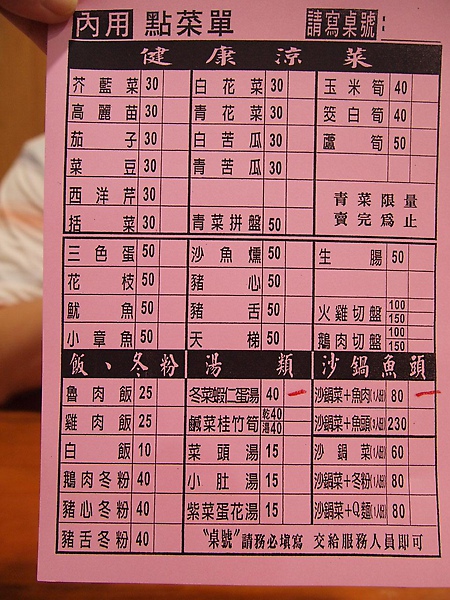 內用 點菜單 請寫桌號:
健康涼菜
芥藍菜 30 白花菜 30 玉米筍 40
高麗苗 30 青花菜 30 筊白筍 40
茄子 30 白苦瓜 30 蘆筍 50
菜豆 30 青苦瓜 30
西洋芹 30 青菜限量
括菜 30 青菜拼盤 50 賣完為止
三色蛋 50 沙魚燻 50 生腸 50
花枝 50 豬心 50
魷魚 50 豬舌 50 火雞切盤 100 150
小章魚 50 天梯 50 鵝肉切盤 100 150
飯、冬粉 湯類 沙鍋魚頭
魯肉飯 25 冬菜蝦仁蛋湯 40 沙鍋菜+魚肉(1人份) 80
雞肉飯 25 鹹菜桂竹筍 乾40 湯40 沙鍋菜+魚頭(3人份) 230
白飯 10 菜頭湯 15 沙鍋菜(1人份) 60
鵝肉冬粉 40 小肚湯 15 沙鍋菜+冬粉(1人份) 80
豬心冬粉 40 紫菜蛋花湯 15 沙鍋菜+Q麵(1人份) 80
豬舌冬粉 40 "桌號"請務必填寫 交給服務人員即可